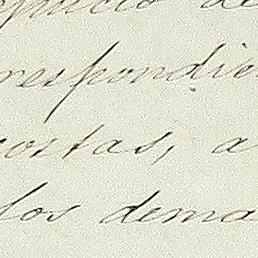 respondie
costas, a
los dema